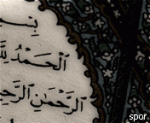 بِسْمِ
اَلْحَمْدُ لِلّٰهِ
اَلرَّحْمٰنِ الرَّحِيمِ
spor